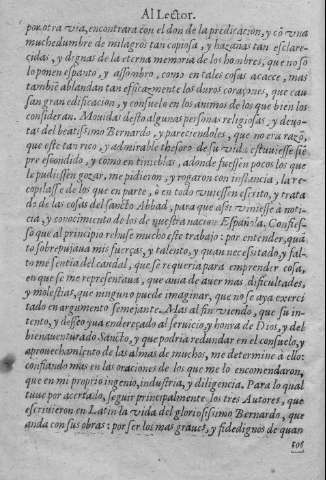 Al Lector.
por otra via, encontrara con el don de la predicacion, y cõ vna
muchedumbre de milagros tan copiosa, y hazañas tan esclare-
cidas, y dignas de la eterna memoria de los hombres, que no so
lo ponen espanto, y assombro, como en tales cosas acaece, mas
tambiẽ ablandan tan eficazmente los duros coraçones, que cau
san gran edificacion, y consuelo en los animos de los que bien los
consideran. Mouidas desto algunas personas religiosas, y deuo-
tas del beatissimo Bernardo, y pareciendoles, que no era razõ,
que este tan rico, y admirable thesoro de su vida estuuiesse siẽ
pre escondido, y como en tinieblas, adonde fuessen pocos los que
le pudiessen gozar, me pidieron, y rogaron con instancia, la re-
copilasse de los que en parte, ò en todo vuiessen escrito, y trata
do de las cosas del sancto Abbad, para que assi viniesse à noti-
cia, y conocimiento de los de nuestra nacion Española. Confies-
so que al principio rehuse mucho este trabajo: por entender, quã
to sobrepujaua mis fuerças, y talento, y quan necesitado, y fal-
to me sentia del caudal, que se requeria para emprender cosa,
en que se me representaua, que auia de auer mas dificultades,
y molestias, que ninguno puede imaginar, que no se aya exerci
tado en argumento semejante. Mas al fin viendo, que su in-
tento, y desseo yua endereçado al seruicio, y honra de Dios, y del
bienauenturado Sancto, y que podria redundar en el consuelo, y
aprouechamiento de las almas de muchos, me determine à ello:
confiando mas en las oraciones de los que me lo encomendaron,
que en mi proprio ingenio, industria, y diligencia. Para lo qual
tuue por acertado, seguir principalmente los tres Autores, que
escriuieron en Latin la vida del gloriosissimo Bernardo, que
anda con sus obras: por ser los mas graues, y fidedignos de quan
tos